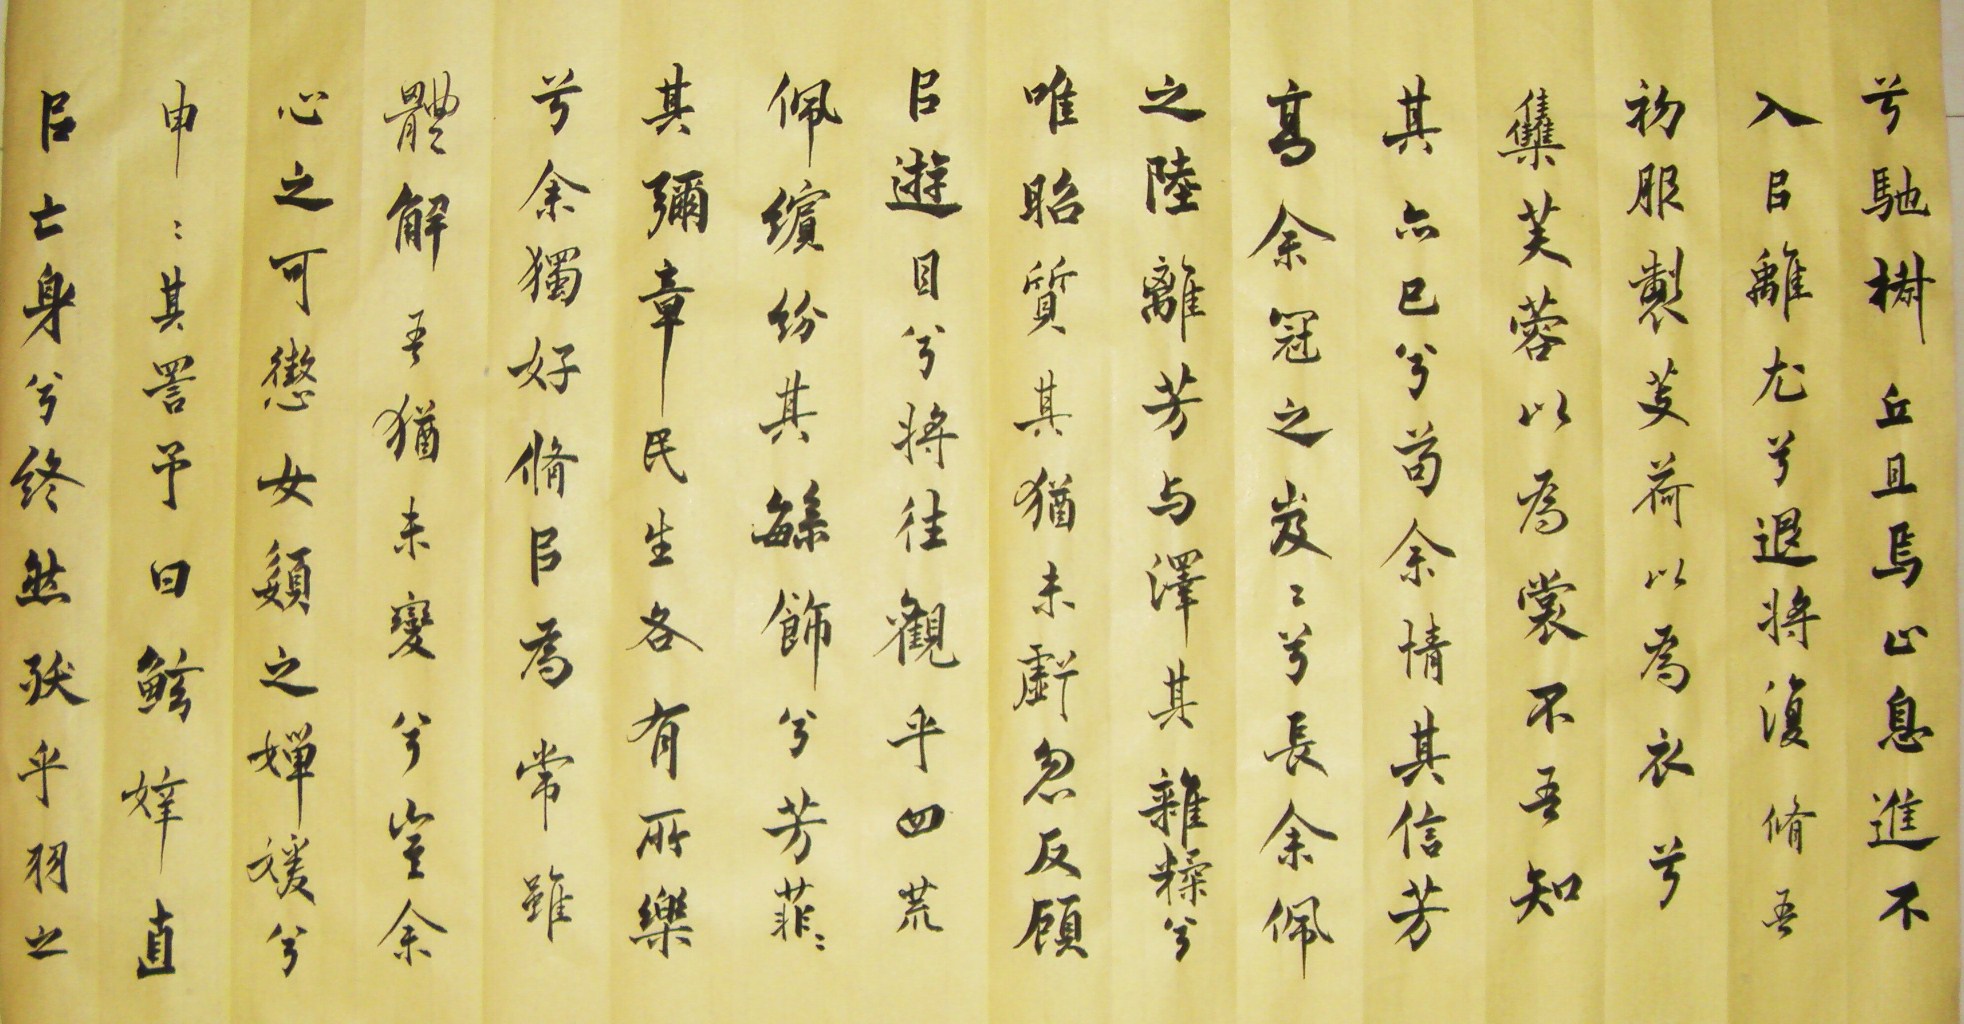 兮馳椒丘且焉止息進不
入㠯離尤兮退將復脩吾
初服製芰荷以為衣兮
雧芙蓉以為裳不吾知
其亦已兮苟余情其信芳
高余冠之岌〻兮長余佩
之陸離芳与澤其雜糅兮
唯昭質其猶未虧忽反顧
㠯遊目兮將往觀乎四荒
佩繽紛其緐飾兮芳菲〻
其彌章民生各有所樂
兮余獨好脩㠯為常雖
體解吾猶未變兮豈余
心之可懲女嬃之嬋媛兮
申〻其詈予曰鮌婞直
㠯亡身兮終然殀乎羽之